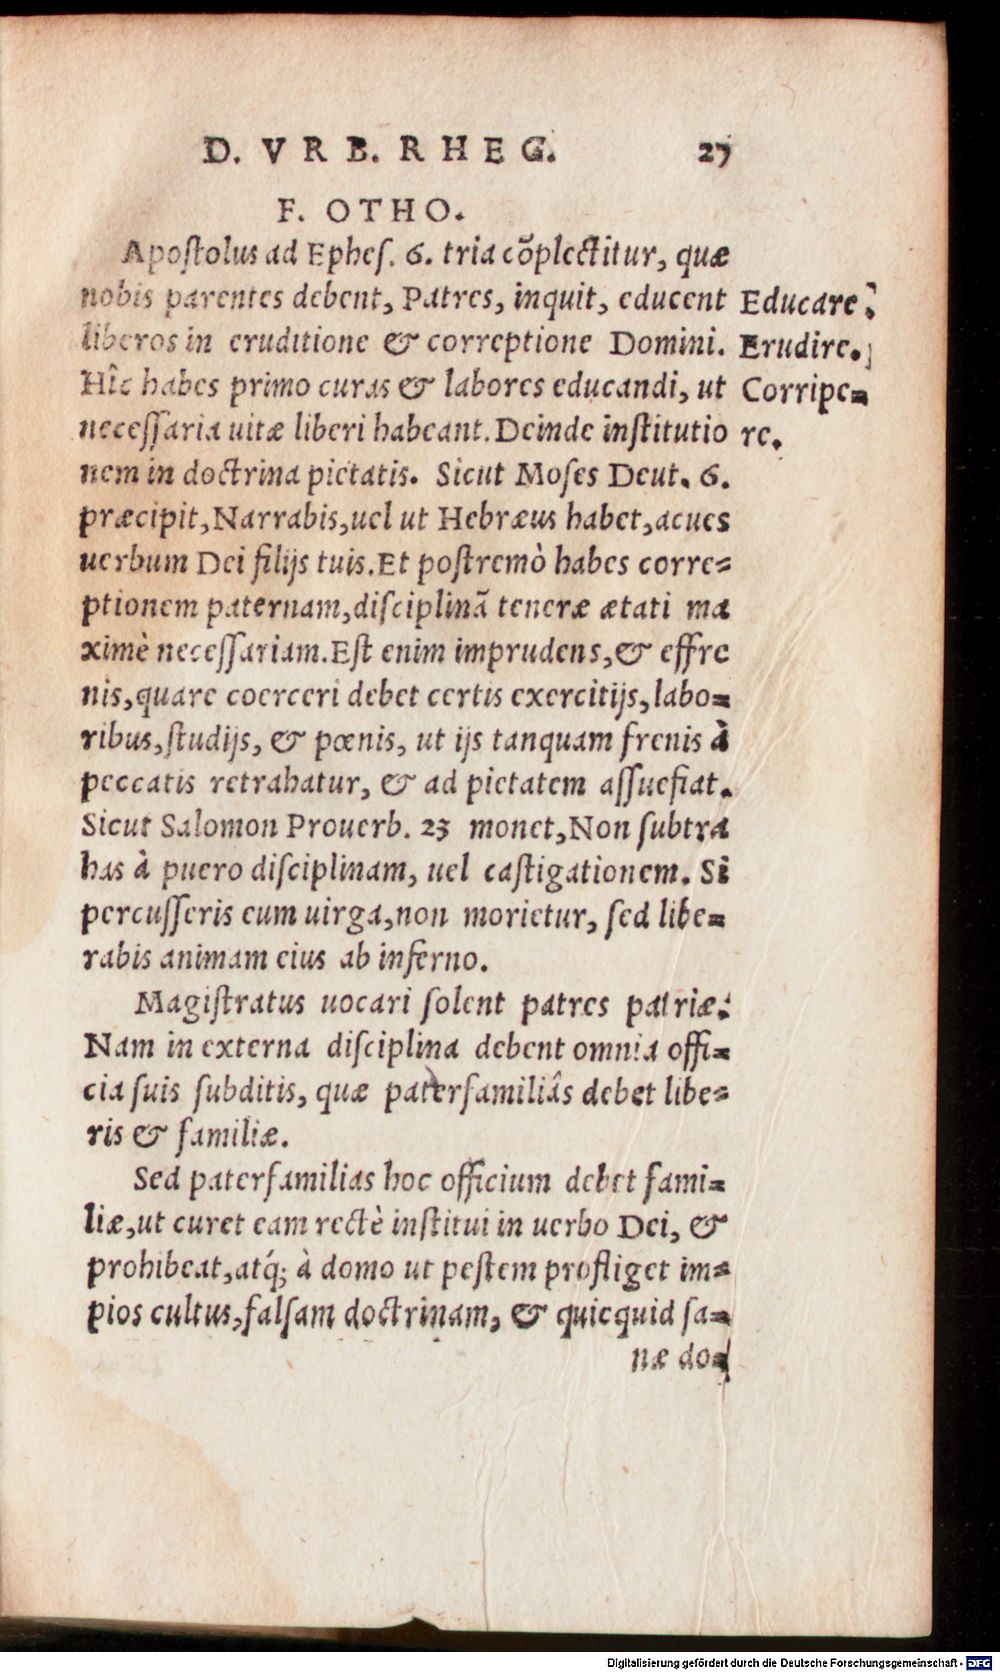 D. VRB. RHEG. 27
F. OTHO.
Apoſtolus ad Epheſ. 6. tria cõplectitur, quæ
nobis parentes debent, Patres, inquit, educent
liberos in eruditione & correptione Domini.
Hîc habes primo curas & labores educandi, ut
neceſſaria uitæ liberi habeant. Deinde inſtitutio
nem in doctrina pietatis. Sicut Moſes Deut. 6.
præcipit, Narrabis, uel ut Hebræus habet, acues
uerbum Dei filijs tuis. Et poſtremò habes corre-
ptionem paternam, diſciplinã teneræ ætati ma
ximè neceſſariam. Eſt enim imprudens, & effre
nis, quare coerceri debet certis exercitijs, labo-
ribus, ſtudijs, & pœnis, ut ijs tanquam frenis à
peccatis retrahatur, & ad pietatem aſſuefiat.
Sicut Salomon Prouerb. 23 monet, Non ſubtra
has à puero diſciplinam, uel caſtigationem. Si
percuſſeris eum uirga, non morietur, ſed libe-
rabis animam eius ab inferno.
Magiſtratus uocari ſolent patres patriæ:
Nam in externa diſciplina debent omnia offi-
cia ſuis ſubditis, quæ paterfamiliâs debet libe-
ris & familiæ.
Sed paterfamilias hoc officium debet fami-
liæ, ut curet eam rectè inſtitui in uerbo Dei, &
prohibeat, atq́; à domo ut peſtem profliget im-
pios cultus, falſam doctrinam, & quicquid ſa-
næ do-
Educare:
Erudire.
Corripe-
re.
Digitalisierung gefördert durch die Deutsche Forschungsgemeinschaft - DFG